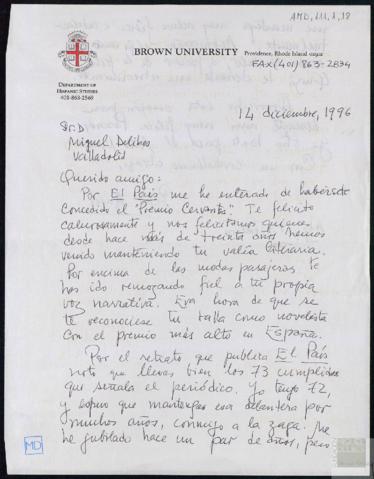 AMD, 111, 1, 18
BROWN UNIVERSITY Providence, Rhode Island 02912
FAX (401) 863-2834
DEPARTMENT OF
HISPANIC STUDIES
401-863-2569
14 diciembre, 1996
Sr. D.
Miguel Delibes
Valladolid
Querido amigo:
Por El País me he enterado de habérsete
concedido el "Premio Cervantes". Te felicito
calurosamente y nos felicitamos quienes
desde hace más de treinta años hemos
venido manteniendo tu valía literaria.
Por encima de las modas pasajeras te
has ido remozando fiel a tu propia
voz narrativa. Era hora de que se
te reconociese tu talla como novelista
con el premio más alto en España.
Por el retrato que publica El País
noto que llevas bien los 73 cumplidos
que señala el periódico. Yo tengo 72,
y espero que mantengas esa delantera por
muchos años, conmigo a la zaga. Me
he jubilado hace un par de años, pero
MD